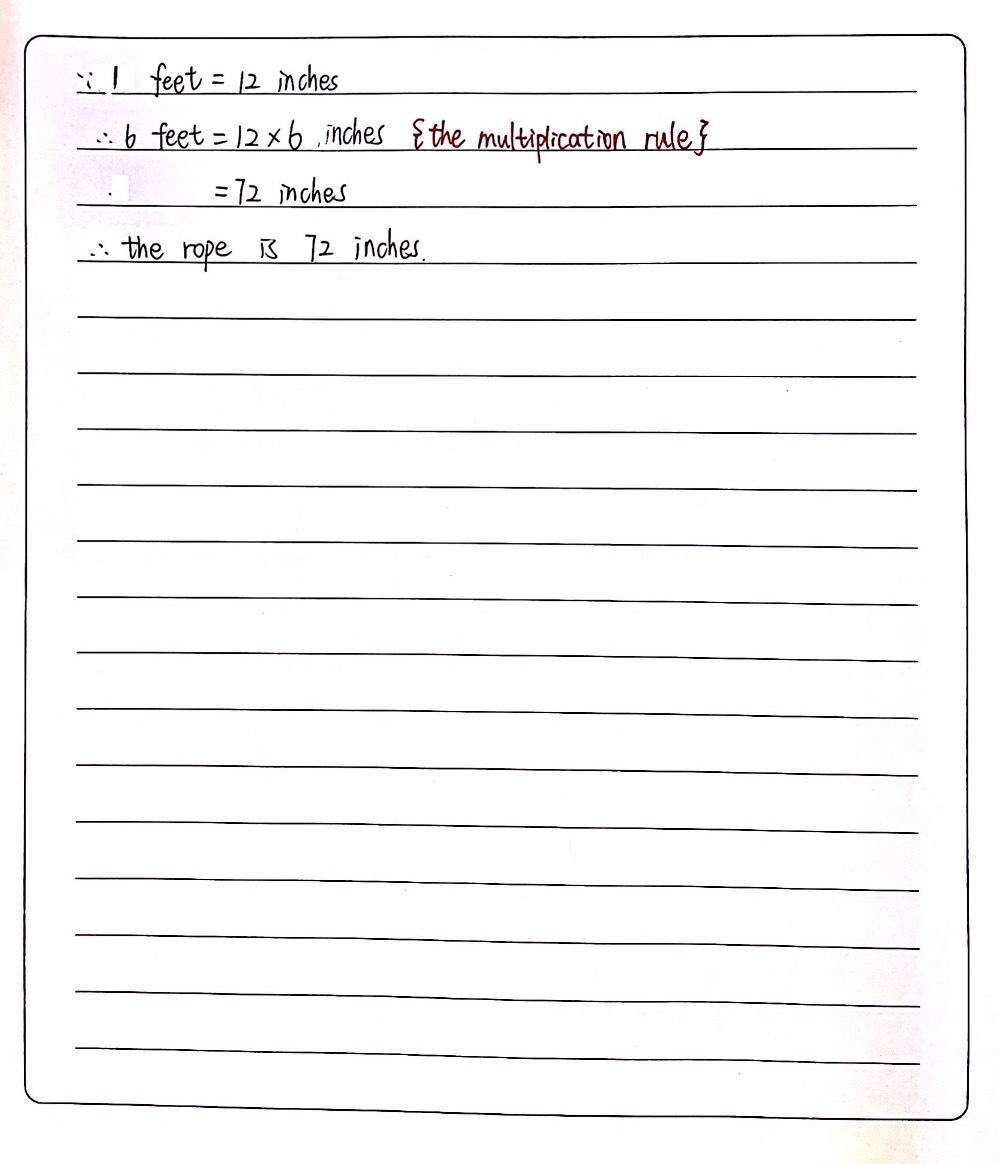 ∵ 1 feet = 12 inches
∴ 6 feet = 12 × 6 inches {the multiplication rule}
= 72 inches
∴ the rope is 72 inches.